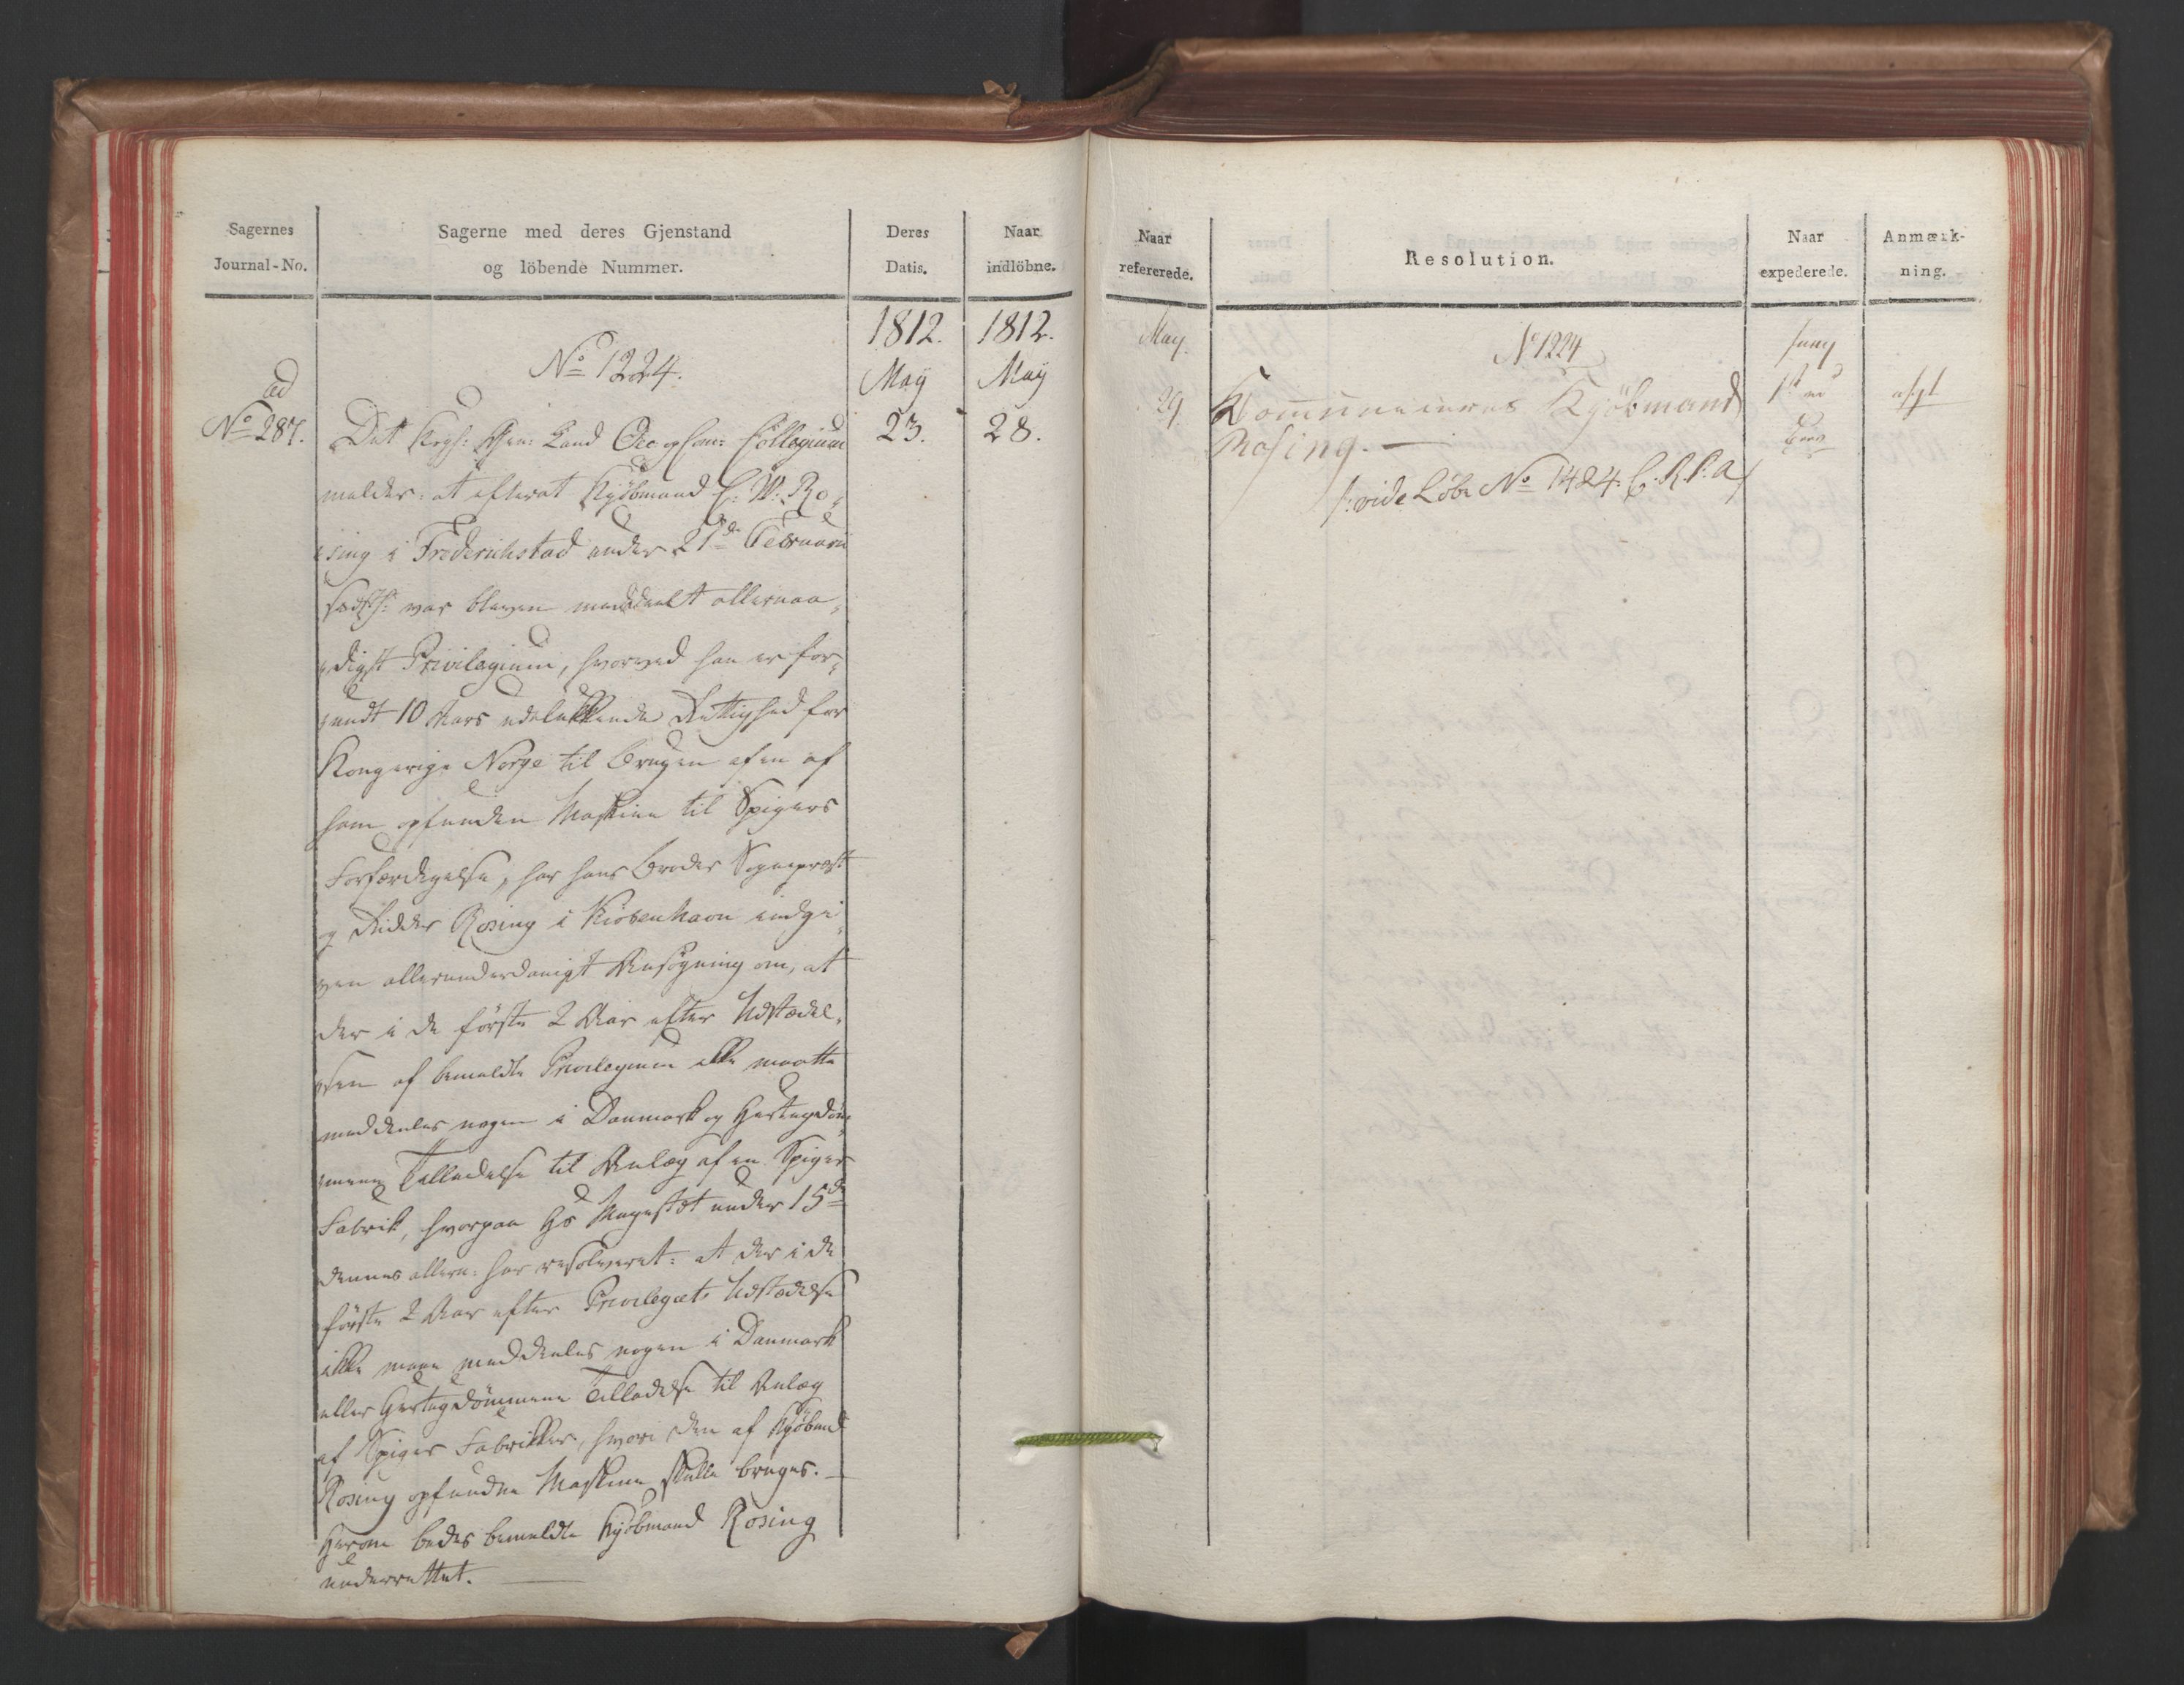 Sagernes
Journal-No.
Sagerne med deres Gjenstand
og löbende Nummer.
Deres
Datis.
Naar
indlöbne.
1812.
1812.
No 1224.
May
May
ad
No 287.
23.
28.
Det Kngl: Gen: Land Oec og Com: Collegium
melder: at efterat Kjøbmand C: W: Ro-
sing i Frederichstad under 21de Februarii
var bleven meddeelt allernaa-
digst Privilegium, hvorved han er for-
undt 10 Aars udelukkende Rettighed for
Kongerige Norge til Brugen af en af
ham opfunden Maskine til Spigers
Forfærdigelse, har hans Broder Sognepræst
og Ridder Rosing i Kiöbenhavn indgi-
ven allerunderdanigst Ansögning om, at
der i de förste 2 Aar efter Udstædel-
sen af bemeldte Privilegium ikke maatte
meddeeles nogen i Danmark og Hertugdöm-
mene Tilladelse til Anlæg af en Spiger
Fabrik, hvorpaa Hs Majestæt under 15de
dennes allern: har resolveret: at der i de
förste 2 Aar efter Privilegiets Udstædelse
ikke maae meddeeles nogen i Danmark
eller Hertugdömmene Tilladelse til Anlæg
af Spiger Fabrikker, hvori den af Kjøbmd
Rosing opfundne Maskine skulle bruges. —
Herom bedes bemeldte Kjøbmand Rosing
underrettet. —
Naar
refererede.
Resolution.
Naar
expederede.
Anmærk-
ning.
May.
29.
No 1224
Communiceres Kjöbmand
Rosing. —
/: vide Löbe No 1424. C. R. P. a/
Juny
1st
afgl